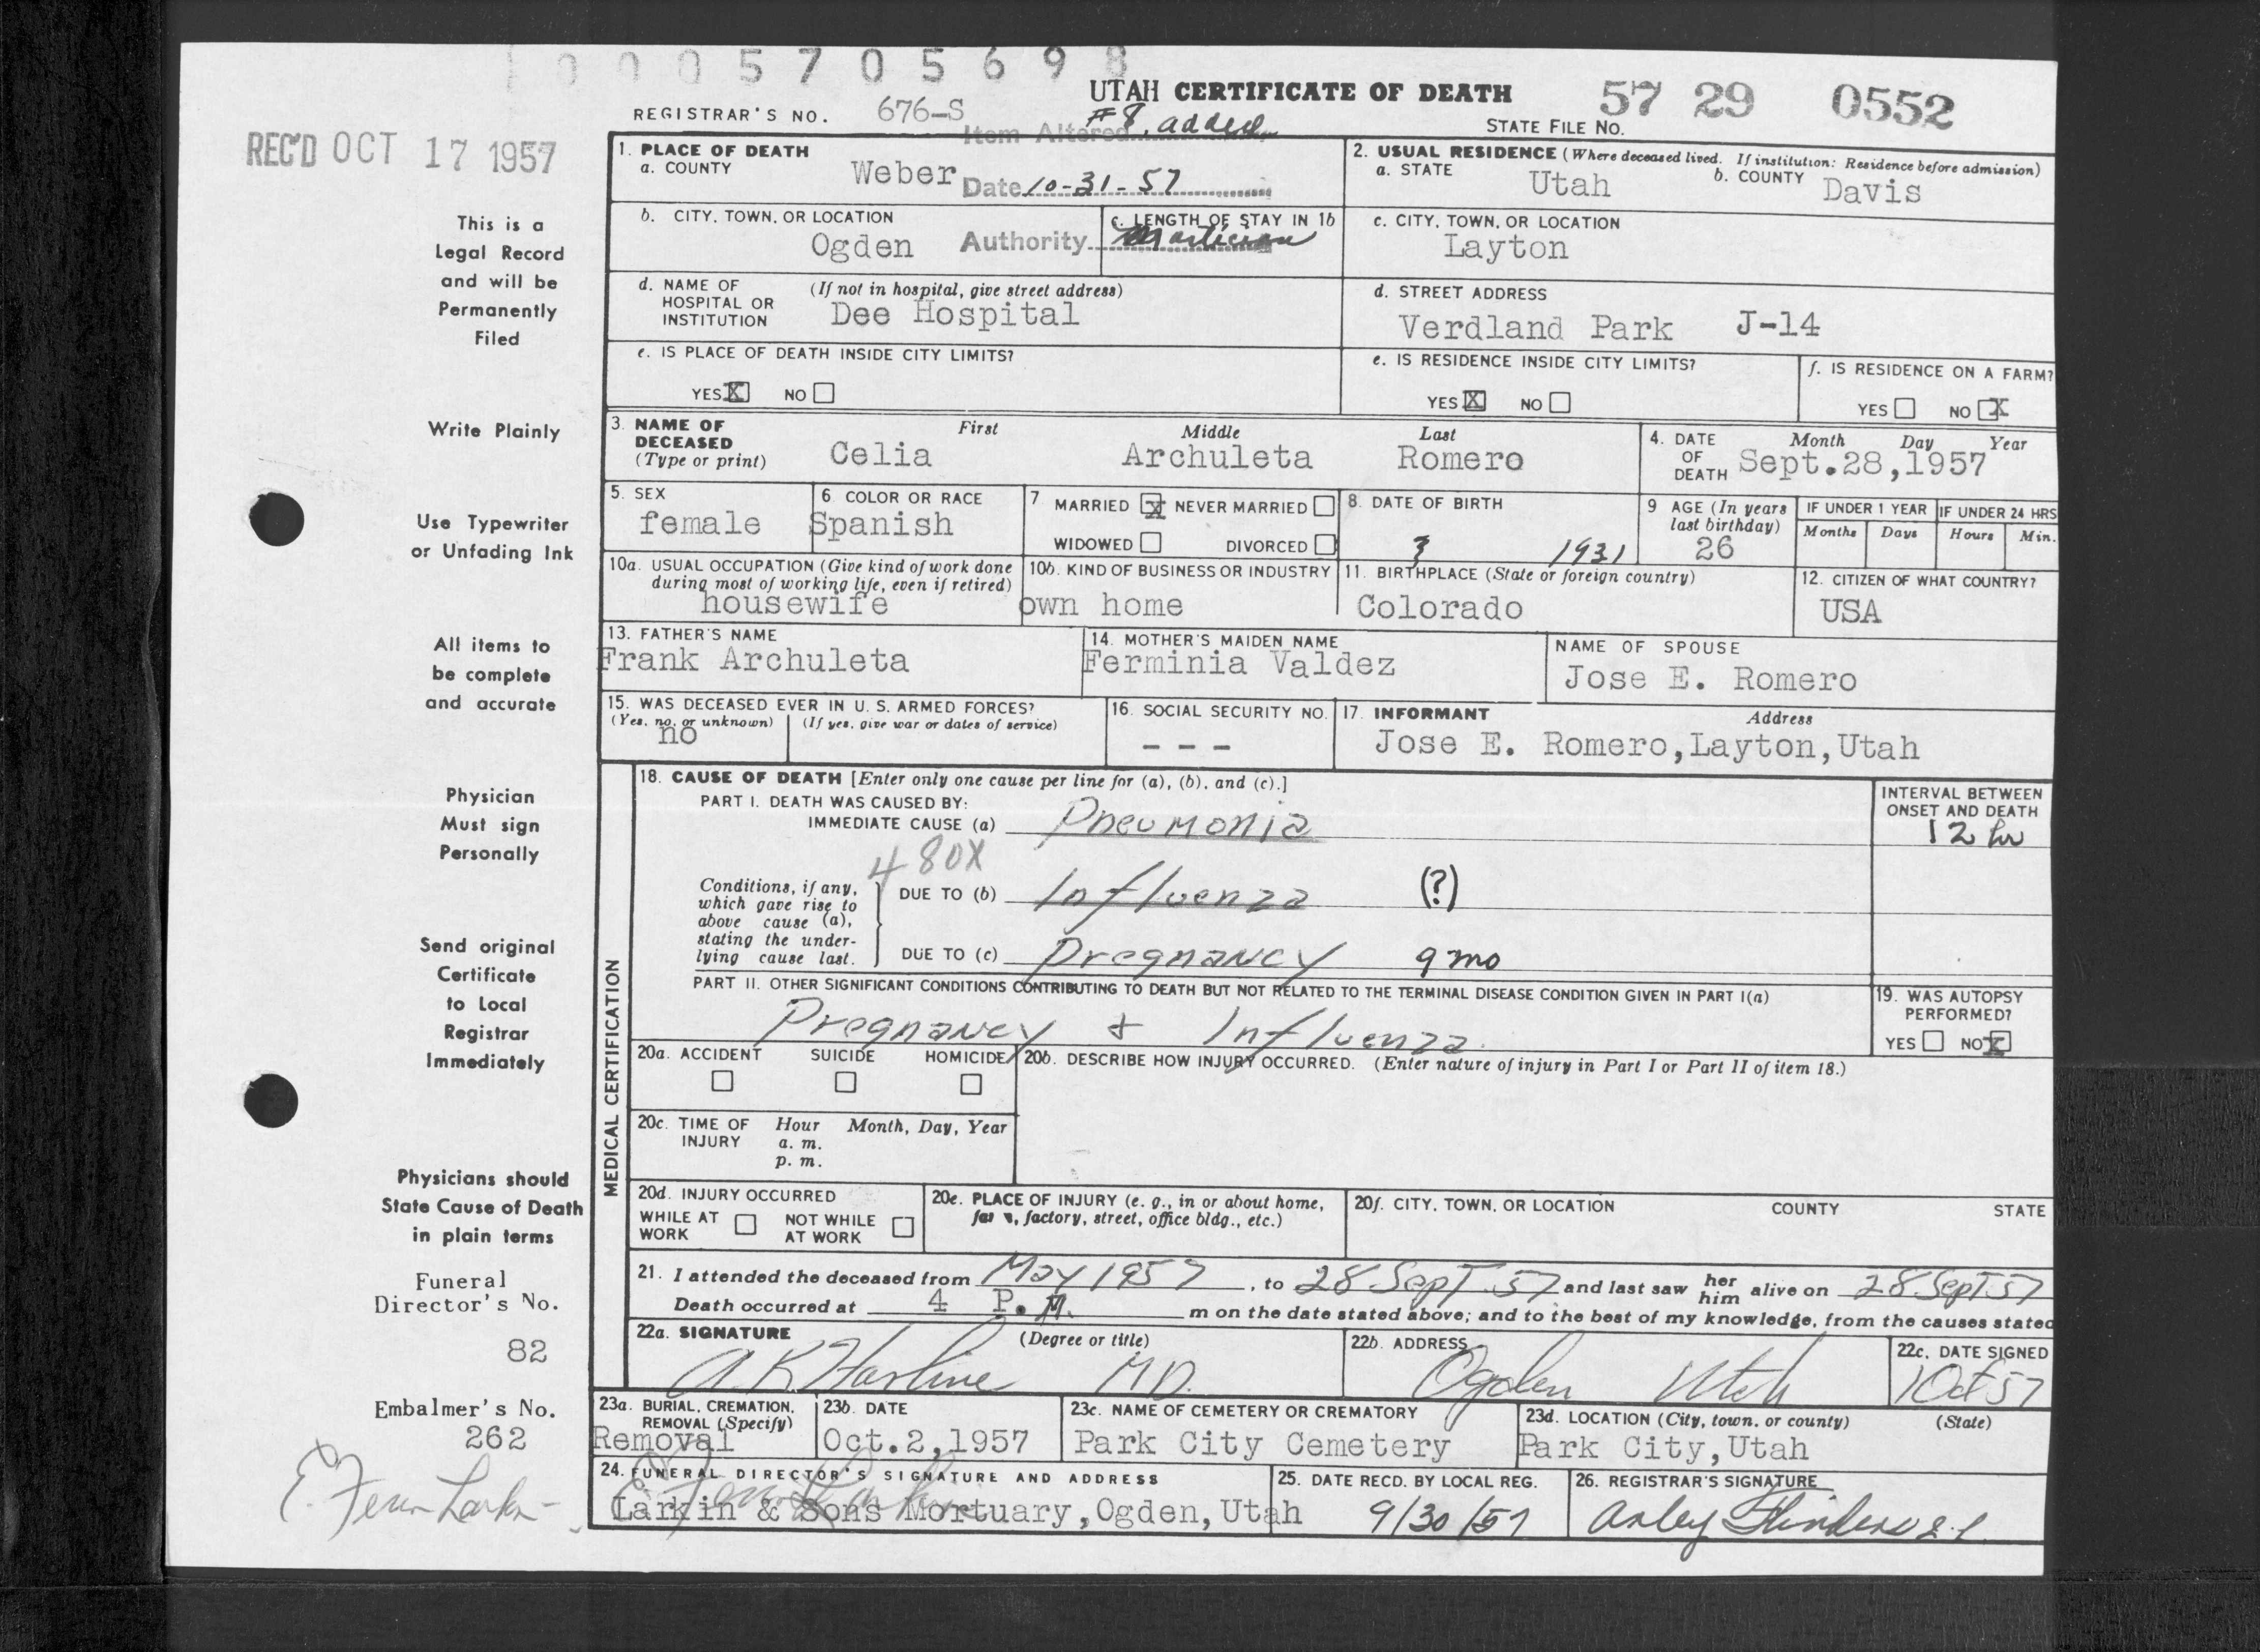 1 0 0 0 5 7 0 5 6 9 8
UTAH CERTIFICATE OF DEATH
57 29 0552
REGISTRAR'S NO. 676-S
STATE FILE NO.
Item Altered #8, added
REC'D OCT 17 1957
1. PLACE OF DEATH
a. COUNTY Weber
Date 10-31-57
2. USUAL RESIDENCE (Where deceased lived. If institution: Residence before admission)
a. STATE Utah b. COUNTY Davis
b. CITY, TOWN, OR LOCATION Ogden
Authority Mortician
c. LENGTH OF STAY IN 1b
c. CITY, TOWN, OR LOCATION
Layton
d. NAME OF HOSPITAL OR INSTITUTION (If not in hospital, give street address)
Dee Hospital
d. STREET ADDRESS
Verdland Park J-14
e. IS PLACE OF DEATH INSIDE CITY LIMITS?
YES X NO
e. IS RESIDENCE INSIDE CITY LIMITS?
YES X NO
f. IS RESIDENCE ON A FARM?
YES NO X
3. NAME OF DECEASED (Type or print)
First Middle Last
Celia Archuleta Romero
4. DATE OF DEATH Month Day Year
Sept.28,1957
5. SEX
female
6. COLOR OR RACE
Spanish
7 MARRIED X NEVER MARRIED
WIDOWED DIVORCED
8. DATE OF BIRTH
? 1931
9 AGE (In years last birthday)
26
IF UNDER 1 YEAR
Months Days
IF UNDER 24 HRS
Hours Min.
10a. USUAL OCCUPATION (Give kind of work done during most of working life, even if retired)
housewife
10b. KIND OF BUSINESS OR INDUSTRY
own home
11. BIRTHPLACE (State or foreign country)
Colorado
12. CITIZEN OF WHAT COUNTRY?
USA
13. FATHER'S NAME
Frank Archuleta
14. MOTHER'S MAIDEN NAME
Ferminia Valdez
NAME OF SPOUSE
Jose E. Romero
15. WAS DECEASED EVER IN U. S. ARMED FORCES?
(Yes, no, or unknown) (If yes, give war or dates of service)
no
16. SOCIAL SECURITY NO.
- - -
17. INFORMANT Address
Jose E. Romero,Layton,Utah
MEDICAL CERTIFICATION
18. CAUSE OF DEATH [Enter only one cause per line for (a), (b), and (c).]
PART I. DEATH WAS CAUSED BY:
IMMEDIATE CAUSE (a) Pneumonia
INTERVAL BETWEEN ONSET AND DEATH
12 hr
480X
Conditions, if any, which gave rise to above cause (a), stating the underlying cause last.
DUE TO (b) Influenza (?)
DUE TO (c) Pregnancy 9 mo
PART II. OTHER SIGNIFICANT CONDITIONS CONTRIBUTING TO DEATH BUT NOT RELATED TO THE TERMINAL DISEASE CONDITION GIVEN IN PART I(a)
Pregnancy + Influenza.
19. WAS AUTOPSY PERFORMED?
YES NO X
20a. ACCIDENT SUICIDE HOMICIDE
20b. DESCRIBE HOW INJURY OCCURRED. (Enter nature of injury in Part I or Part II of item 18.)
20c. TIME OF INJURY Hour Month, Day, Year
a. m.
p. m.
20d. INJURY OCCURRED
WHILE AT WORK NOT WHILE AT WORK
20e. PLACE OF INJURY (e. g., in or about home, farm, factory, street, office bldg., etc.)
20f. CITY, TOWN, OR LOCATION COUNTY STATE
21. I attended the deceased from May 1957, to 28 Sept 57 and last saw her him alive on 28 Sept 57
Death occurred at 4 P.M. m on the date stated above; and to the best of my knowledge, from the causes stated
22a. SIGNATURE (Degree or title)
A.K. Harline MD.
22b. ADDRESS
Ogden Utah
22c. DATE SIGNED
1 Oct 57
23a. BURIAL, CREMATION, REMOVAL (Specify)
Removal
23b. DATE
Oct.2,1957
23c. NAME OF CEMETERY OR CREMATORY
Park City Cemetery
23d. LOCATION (City, town, or county) (State)
Park City,Utah
24. FUNERAL DIRECTOR'S SIGNATURE AND ADDRESS
Larkin & Sons Mortuary,Ogden,Utah
25. DATE RECD. BY LOCAL REG.
9/30/57
26. REGISTRAR'S SIGNATURE
This is a
Legal Record
and will be
Permanently
Filed
Write Plainly
Use Typewriter
or Unfading Ink
All items to
be complete
and accurate
Physician
Must sign
Personally
Send original
Certificate
to Local
Registrar
Immediately
Physicians should
State Cause of Death
in plain terms
Funeral
Director's No.
82
Embalmer's No.
262
E. Fern Larkin